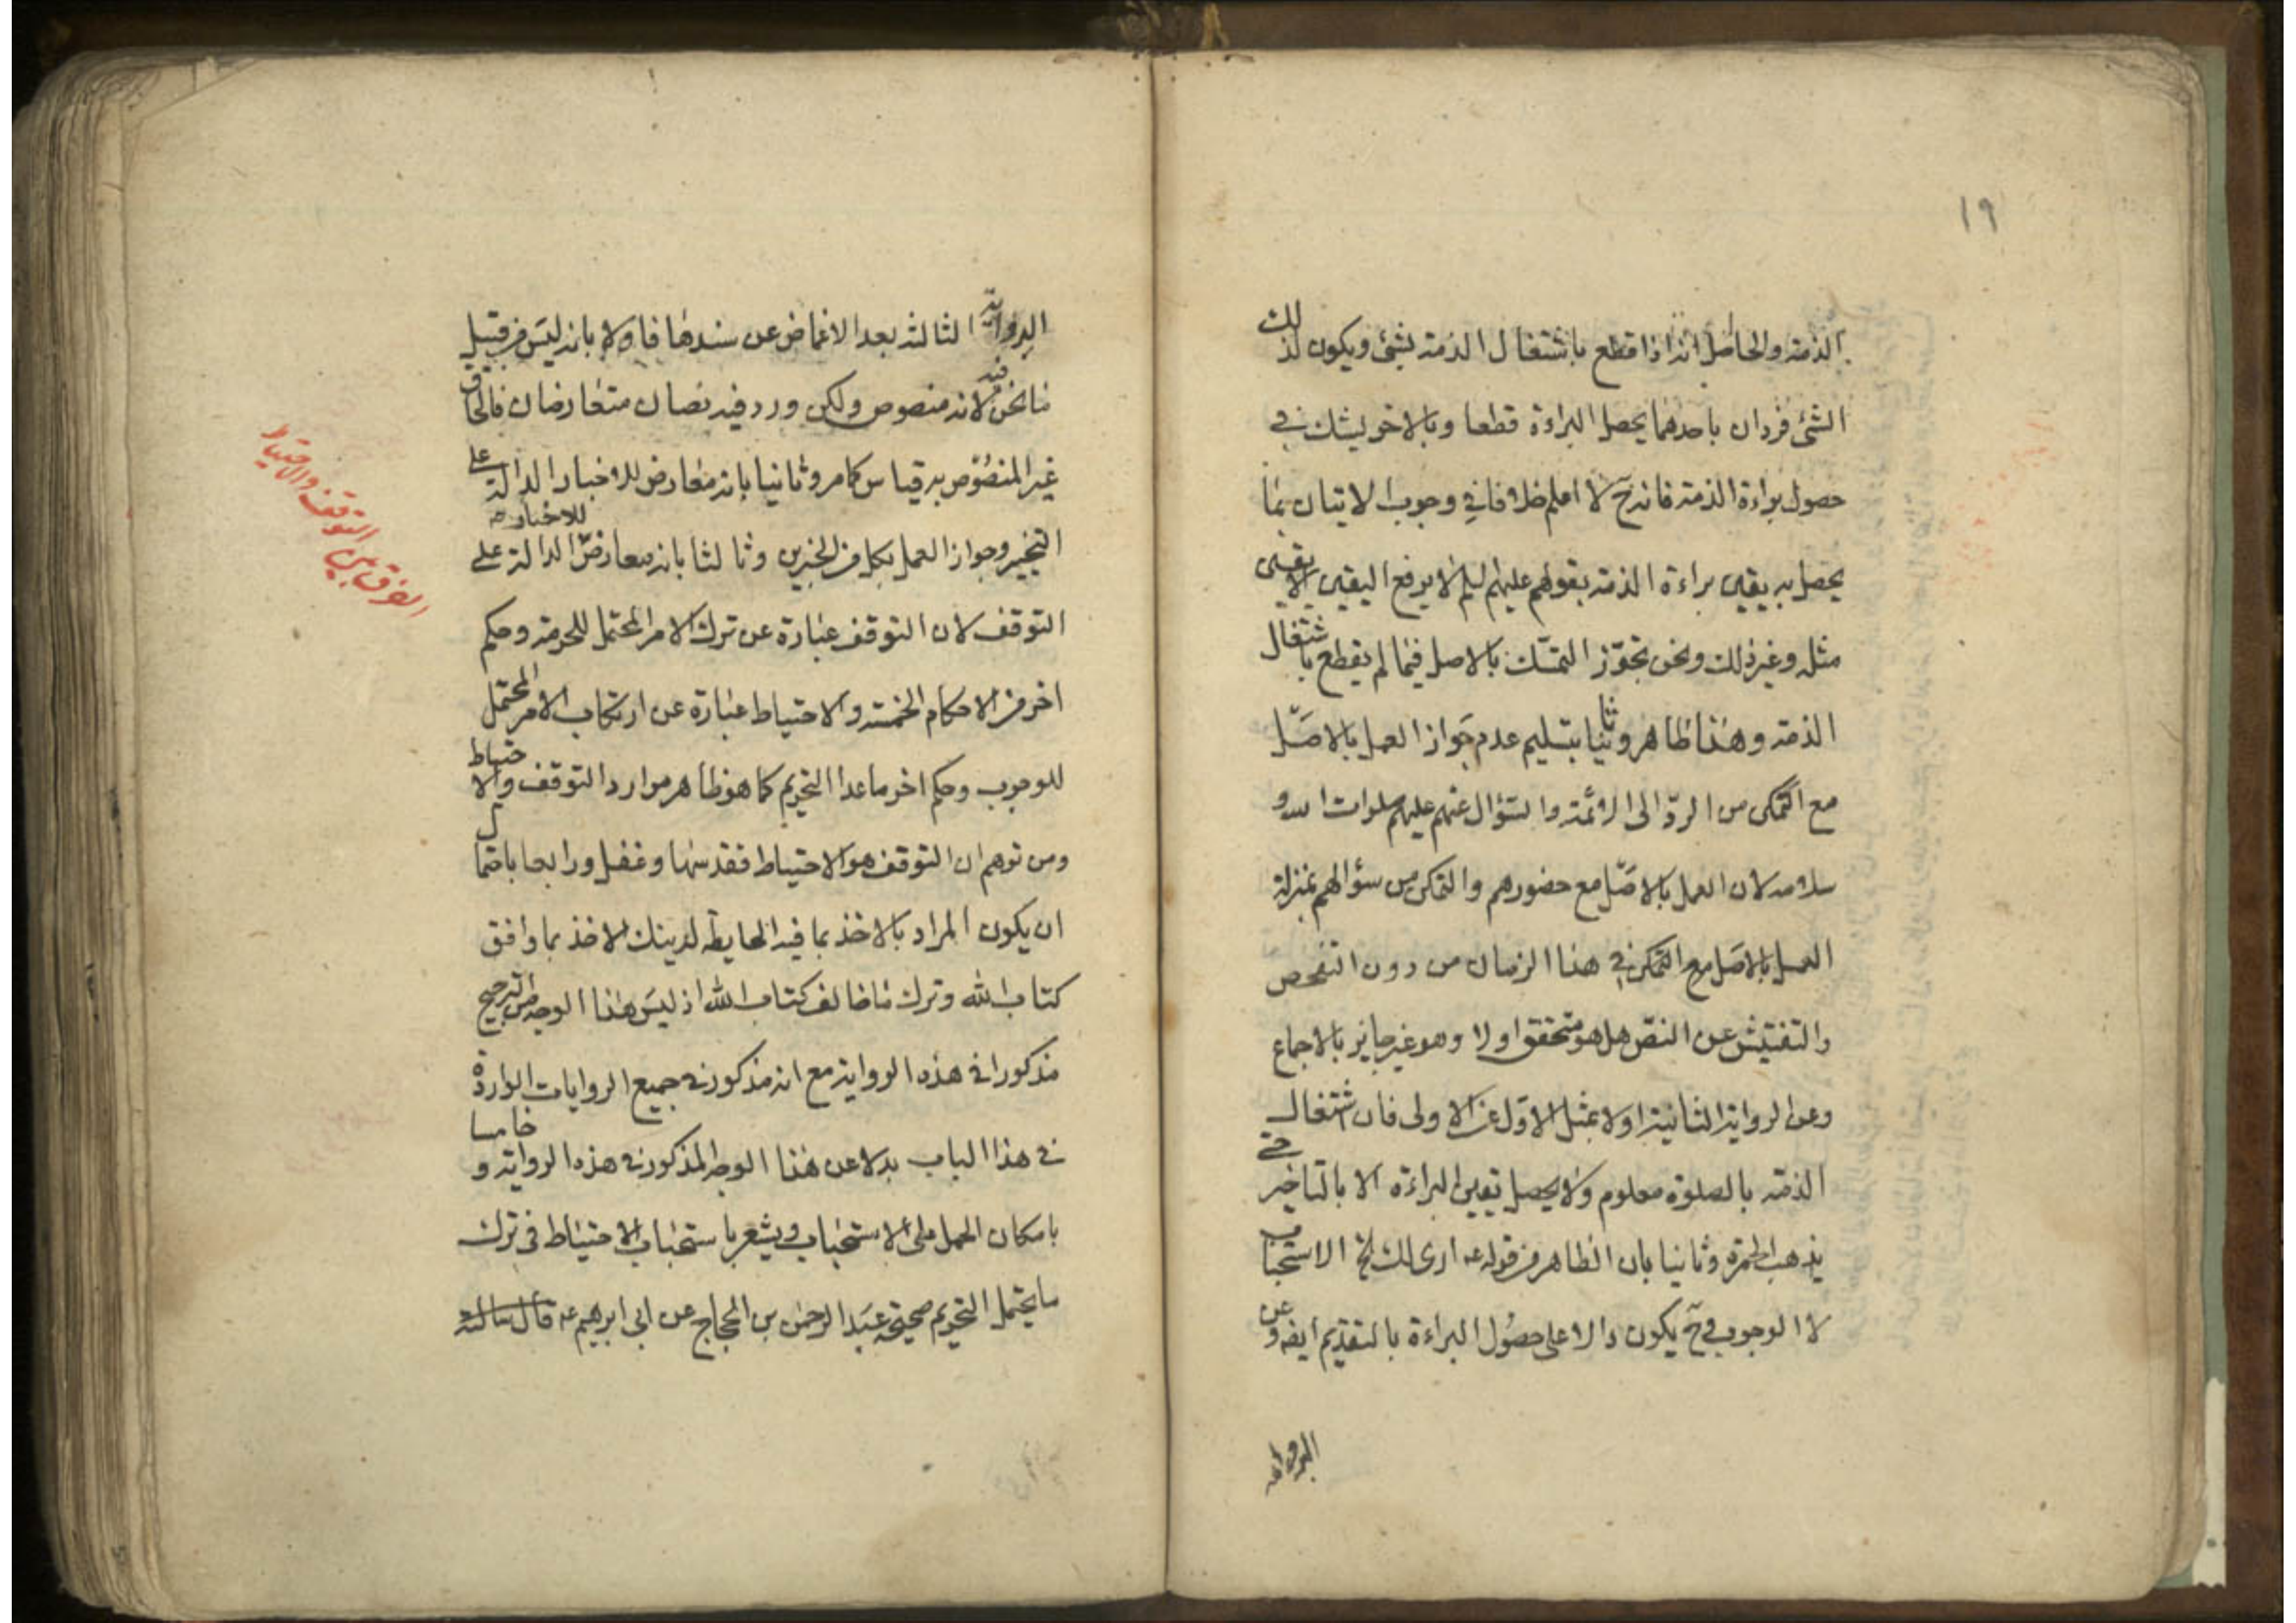 ١٩
الذمة والحاصل انه اذا قطع باشتغال الذمة بشئ ويكون لذلك
الشئ فردان باحدهما يحصل البراءة قطعا وبالاخر يشك في
حصول براءة الذمة فانه ح لا اعلم خلافا في وجوب الاتيان بما
يحصل به يقين براءة الذمة بقولهم عليهم السلم لا يرفع اليقين الا يقين
مثله وغير ذلك ونحن نجوّز التمسّك بالاصل فيما لم يقطع باشتغال
الذمة وهذا ظاهر وثانيا بتسليم عدم جواز العمل بالاصل
مع التمكن من الردّ الى الائمة والسؤال عنهم عليهم صلوات الله و
سلامه لان العمل بالاصل مع حضورهم والتمكن من سؤالهم بمنزلة
العمل بالاصل مع التمكن في هذا الزمان من دون التفحص
والتفتيش عن النصّ هل هو متحقق اولا وهو غير جايز بالاجماع
وعن الرواية الثانية اولا بمثل الاوّل عن الاولى فان اشتغال
الذمة بالصلوة معلوم ولا يحصل يقين البراءة الا بالتاخير حتى
يذهب الحمرة وثانيا بان الظاهر من قوله ع ارى لك الخ الاستحباب
لا الوجوب وح يكون دالا على حصول البراءة بالتقديم ايضه وعن
الرواية
الرواية الثالثة بعد الاغماض عن سندها فاولا بانه ليس من قبيل
ما نحن فيه لانه منصوص ولكن ورد فيه نصان متعارضان فالحاق
غير المنصوص به قياس كما مر وثانيا بانه معارض للاخبار الدالة على
التخيير وجواز العمل بكل من الخبرين وثالثا بانه معارض للاخبار الدالة على
التوقف لان التوقف عبارة عن ترك الامر المحتمل للحرمة وحكم
اخر من الاحكام الخمسة والاحتياط عبارة عن ارتكاب الامر المحتمل
للوجوب وحكم اخر ما عدا التحريم كما هو ظاهر موارد التوقف والاحتياط
ومن توهم ان التوقف هو الاحتياط فقد سها وغفل ورابعا باحتمال
ان يكون المراد بالاخذ بما فيه الحايطة لدينك الاخذ بما وافق
كتاب الله وترك ما خالف كتاب الله اذ ليس هذا الوجه من الترجيح
مذكورا في هذه الرواية مع انه مذكور في جميع الروايات الواردة
في هذا الباب بدلا عن هذا الوجه المذكور في هذه الرواية وخامسا
بامكان الحمل على الاستحباب ويشعر باستحباب الاحتياط في ترك
ما يحتمل التحريم صحيحة عبد الرحمن بن الحجاج عن ابي ابرهيم ع قال سالته
الفرق بين التوقف والاحتياط